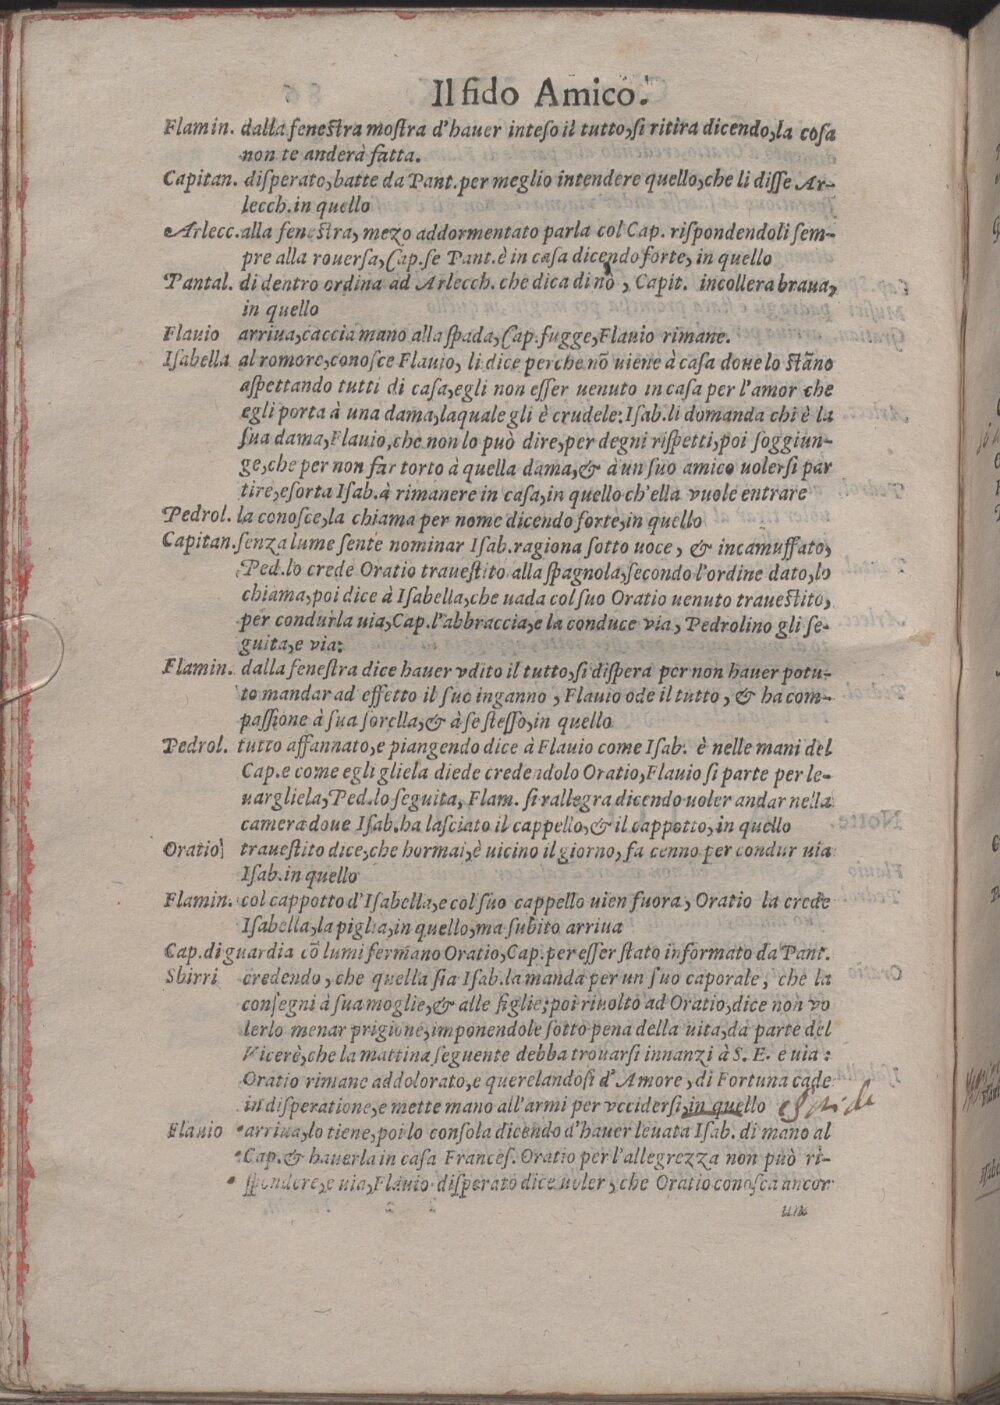 Il fido Amico.
Flamin. dalla fenestra mostra d'hauer inteso il tutto, si ritira dicendo, la cosa
non te anderà fatta.
Capitan. disperato, batte da Pant. per meglio intendere quello, che li disse Ar-
lecch. in quello
Arlecc. alla fenestra, mezo addormentato parla col Cap. rispondendoli sem-
pre alla rouersa, Cap. se Pant. è in casa dicendo forte, in quello
Pantal. di dentro ordina ad Arlecch. che dica di nò, Capit. in collera braua,
in quello
Flauio arriua, caccia mano alla spada, Cap. fugge, Flauio rimane.
Isabella al romore, conosce Flauio, li dice perche nō uiene à casa doue lo stāno
aspettando tutti di casa, egli non esser uenuto in casa per l'amor che
egli porta à una dama, laquale gli è crudele: Isab. li domanda chi è la
sua dama, Flauio, che non lo può dire, per degni rispetti, poi soggiun-
ge, che per non far torto à quella dama, & à un suo amico uolersi par
tire, esorta Isab. à rimanere in casa, in quello ch'ella vuole entrare
Pedrol. la conosce, la chiama per nome dicendo forte, in quello
Capitan. senza lume sente nominar Isab. ragiona sotto uoce, & incamuffato,
Ped. lo crede Oratio trauestito alla spagnola, secondo l'ordine dato, lo
chiama, poi dice à Isabella, che uada col suo Oratio uenuto trauestito,
per condurla uia, Cap. l'abbraccia, e la conduce via, Pedrolino gli se-
guita, e via:
Flamin. dalla fenestra dice hauer vdito il tutto, si dispera per non hauer potu-
to mandar ad effetto il suo inganno, Flauio ode il tutto, & ha com-
passione à sua sorella, & à se stesso, in quello
Pedrol. tutto affannato, e piangendo dice à Flauio come Isab. è nelle mani del
Cap. e come egli gliela diede credendolo Oratio, Flauio si parte per le-
uargliela, Ped. lo seguita, Flam. si rallegra dicendo uoler andar nella
camera doue Isab. ha lasciato il cappello, & il cappotto, in quello
Oratio trauestito dice, che hormai, è uicino il giorno, fa cenno per condur uia
Isab. in quello
Flamin. col cappotto d'Isabella, e col suo cappello uien fuora, Oratio la crede
Isabella, la piglia, in quello, ma subito arriua
Cap. di guardia cō lumi fermano Oratio, Cap. per esser stato informato da Pant.
Sbirri credendo, che quella sia Isab. la manda per un suo caporale, che la
consegni à sua moglie, & alle figlie; poi riuolto ad Oratio, dice non vo
lerlo menar prigione, imponendole sotto pena della uita, da parte del
Vicerè, che la mattina seguente debba trouarsi innanzi à S. E. e uia:
Oratio rimane addolorato, e querelandosi d'Amore, di Fortuna cade
in disperatione, e mette mano all'armi per vccidersi, in quello
Flauio arriua, lo tiene, poi lo consola dicendo d'hauer leuata Isab. di mano al
Cap. & hauerla in casa Frances. Oratio per l'allegrezza non può ri-
spondere, e uia, Flauio disperato dice uoler, che Oratio conosca ancor
una